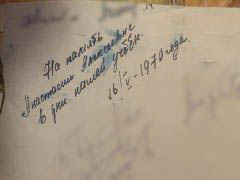 На память
Анастасии Алексеевне
в дни нашей учёбы.
16/V-1970 года.